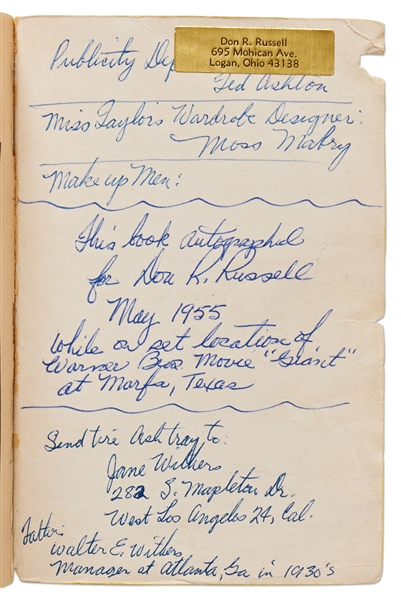 Don R. Russell
695 Mohican Ave.
Logan, Ohio 43138
Publicity Dep
Ted Ashton
Miss Taylor's Wardrobe Designer:
Moss Mabry
Make up Men:
This book autographed
for Don R. Russell
May 1955
while on set location of
Warner Bros. Movie "Giant"
at Marfa, Texas
Send tire Ash tray to:
Jane Withers
282 S. Mapleton Dr.
West Los Angeles 24, Cal.
Father:
Walter E. Withers
Manager at Atlanta, Ga in 1930's